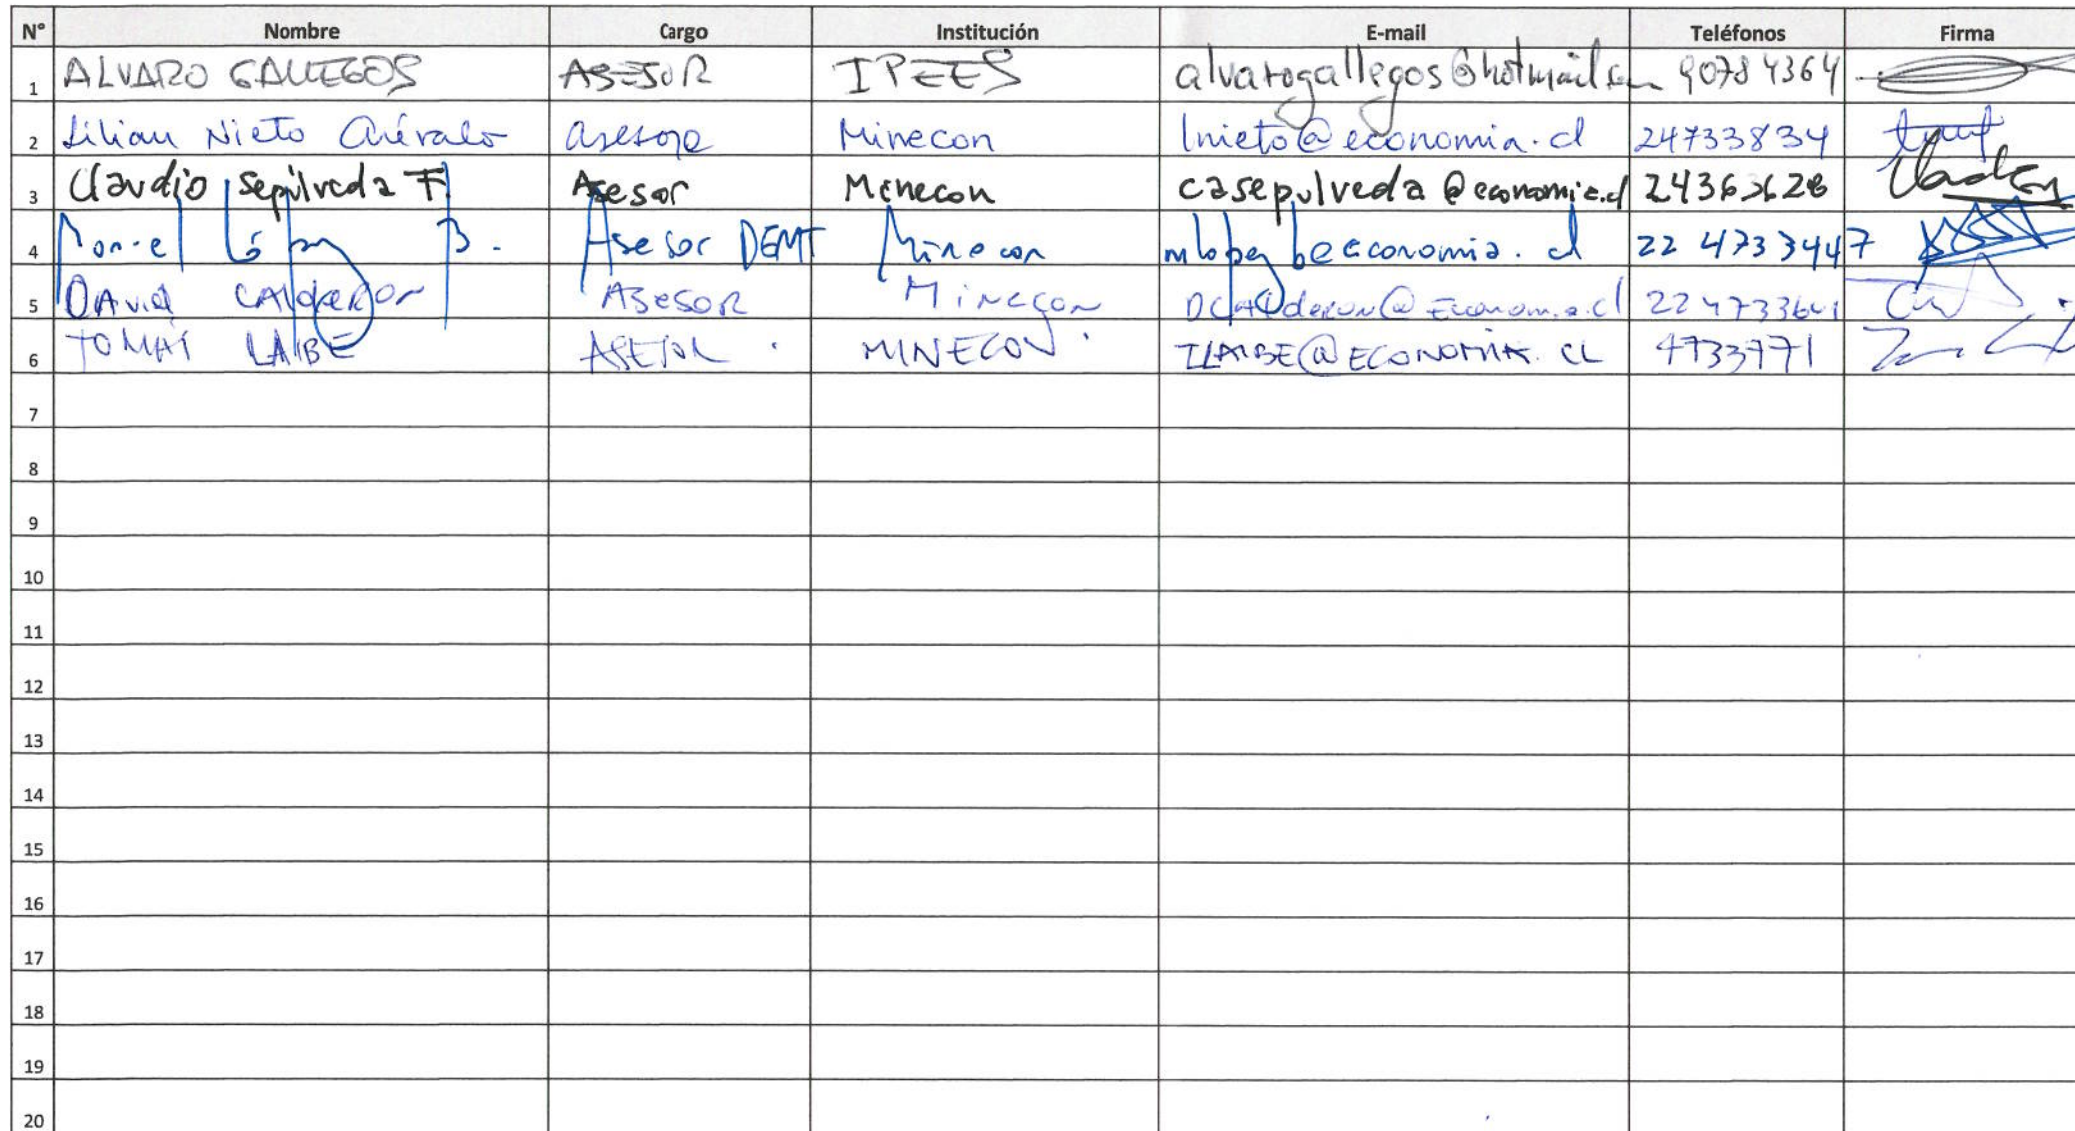 N° Nombre Cargo Institución E-mail Teléfonos Firma
1 ALVARO GALLEGOS ASESOR IPEES alvarogallegos@hotmail.com 90784364
2 Lilian Nieto Arévalo asesora Minecon lnieto@economia.cl 247333834
3 Claudio Sepúlveda F. Asesor Minecon casepulveda@economia.cl 24363628
4 López B. Asesor DEMT Minecon mlopezb@economia.cl 22 4733447
5 DAVID CALDERON ASESOR Minecon DCALderon@Economia.cl 224733641
6 TOMAS LABBE ASESOR MINECON TLABBE@ECONOMIA.CL 4733771
7
8
9
10
11
12
13
14
15
16
17
18
19
20